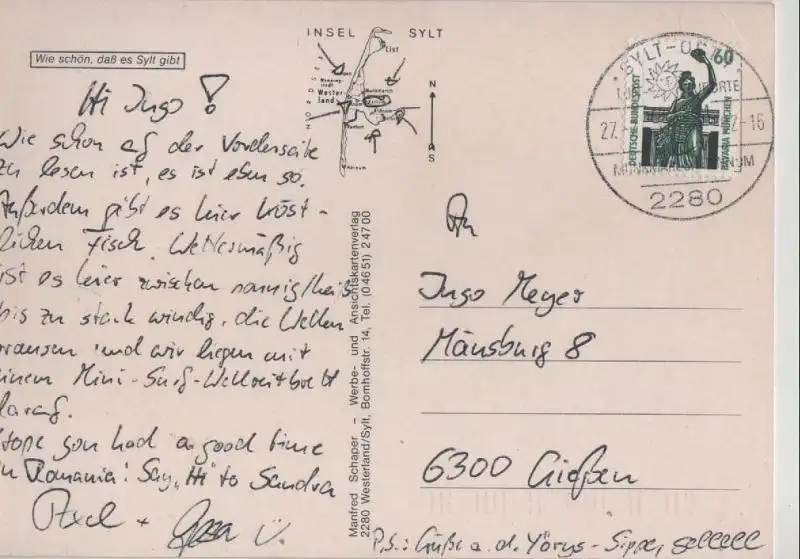 Wie schön, daß es Sylt gibt
Hi Ingo!
Wie schon auf der Vorderseite
zu lesen ist, es ist eben so.
Außerdem gibt es hier köst-
lichen Fisch. Wettermäßig
ist es hier zwischen sonnig/heiß
bis zu stark windig, die Wellen
brausen und wir liegen mit
einem Mini-Surf-Wellenreitbrett
darauf.
Hope you had a good time
in Romania! Say „Hi" to Sandra
Axel +
INSEL SYLT
List
Wester
land
N
S
Manfred Schaper – Werbe- und Ansichtskartenverlag
2280 Westerland/Sylt, Bomhoffstr. 14, Tel. (04651) 24700
SYLT-OST
27.
2-16
2280
60
DEUTSCHE BUNDESPOST
BAVARIA MÜNCHEN
An
Ingo Meyer
Mäusburg 8
6300 Gießen
P.S.: Grüße a. d. Yörgs-Sippe,